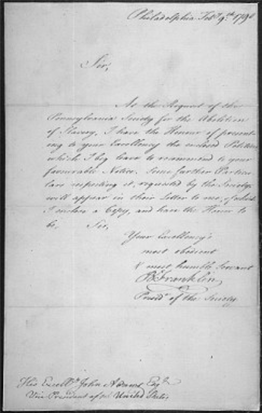 Philadelphia Feby 9th 1790
Sir,
At the Request of the
Pennsylvania Society for the Abolition
of Slavery, I have the Honour of present-
ing to your Excellency the enclosed Petition,
which I beg leave to recommend to your
favourable Notice. Some further Particu-
lars respecting it, requested by the Society,
will appear in their Letter to me, of which
I inclose a Copy, and have the Honor to
be, Sir,
Your Excellency's
most obedient
& most humble Servant
B Franklin
Presidt of the Society
His Excellcy John Adams, Esqr.
Vice President of the United States